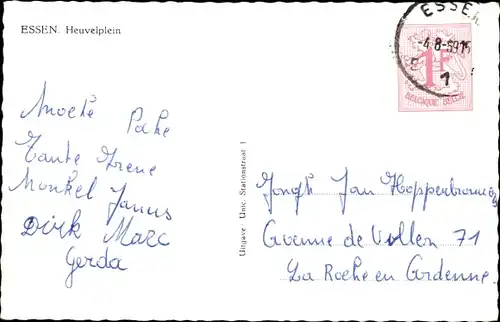 ESSEN. Heuvelplein
ESSEN
-4-8-59 15
1
1F
BELGIQUE BELGIE
Moeke Pake
Tante Irene
Nonkel Janus
Dirk Marc
Gerda
Uitgave Unic Stationstraat 1
Jongh Jan Hopperbrouwers
Avenue de Villen 71
La Roche en Ardenne